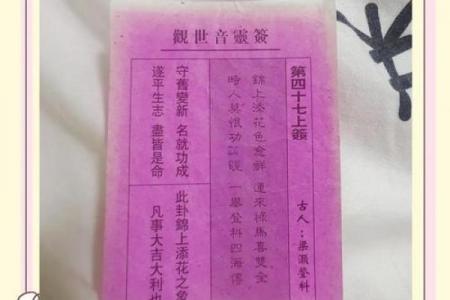 觀世音靈簽
第四十七上簽
古人：梁灝登科
錦上添花色愈鮮 運來祿馬喜雙全
時人莫恨功名晚 一舉登科四海傳
守舊變新 名就功成
遂平生志 盡皆是命
此卦錦上添花之象
凡事大吉大利也